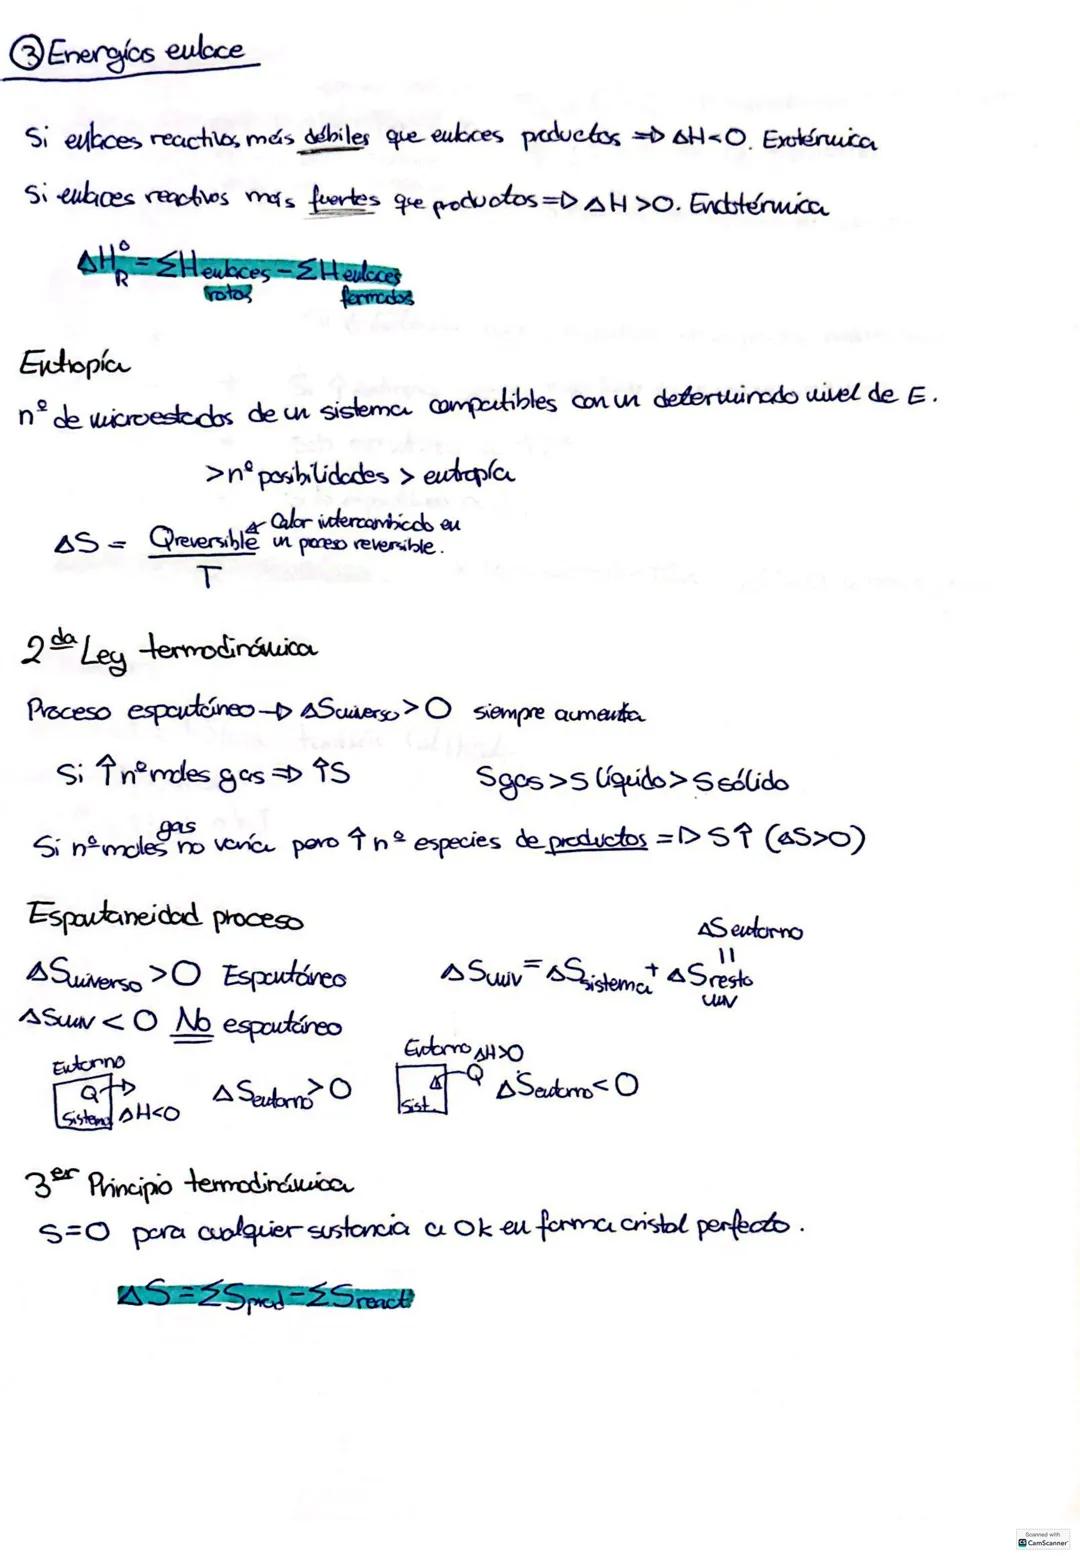 ③ Energías enlace
Si enlaces reactivos más débiles que enlaces productos => ΔH<0. Exotérmica
Si enlaces reactivos más fuertes que productos => ΔH>0. Endotérmica
ΔH°R = ΣH enlaces rotos - ΣH enlaces formados
Entropía
nº de microestados de un sistema compatibles con un determinado nivel de E.
>nº posibilidades > entropía
ΔS = Qreversible / T ← Calor intercambiado en un proceso reversible.
2da Ley termodinámica
Proceso espontáneo → ΔSuniverso > 0 siempre aumenta
Si ↑ nº moles gas => ↑S Sgas > S líquido > S sólido
Si nº moles gas no varía pero ↑ nº especies de productos => S↑ (ΔS>0)
Espontaneidad proceso
ΔSuniverso >0 Espontáneo
ΔSuniv < 0 No espontáneo
ΔSuniv = ΔSsistema + ΔSresto univ
ΔSentorno
Entorno
Q →
Sistema ΔH<0
ΔSentorno > 0
Entorno ΔH>0
Q
Sist.
ΔSentorno < 0
3er Principio termodinámica
S=0 para cualquier sustancia a 0k en forma cristal perfecto.
ΔS = ΣSprod - ΣSreact
Scanned with
CamScanner